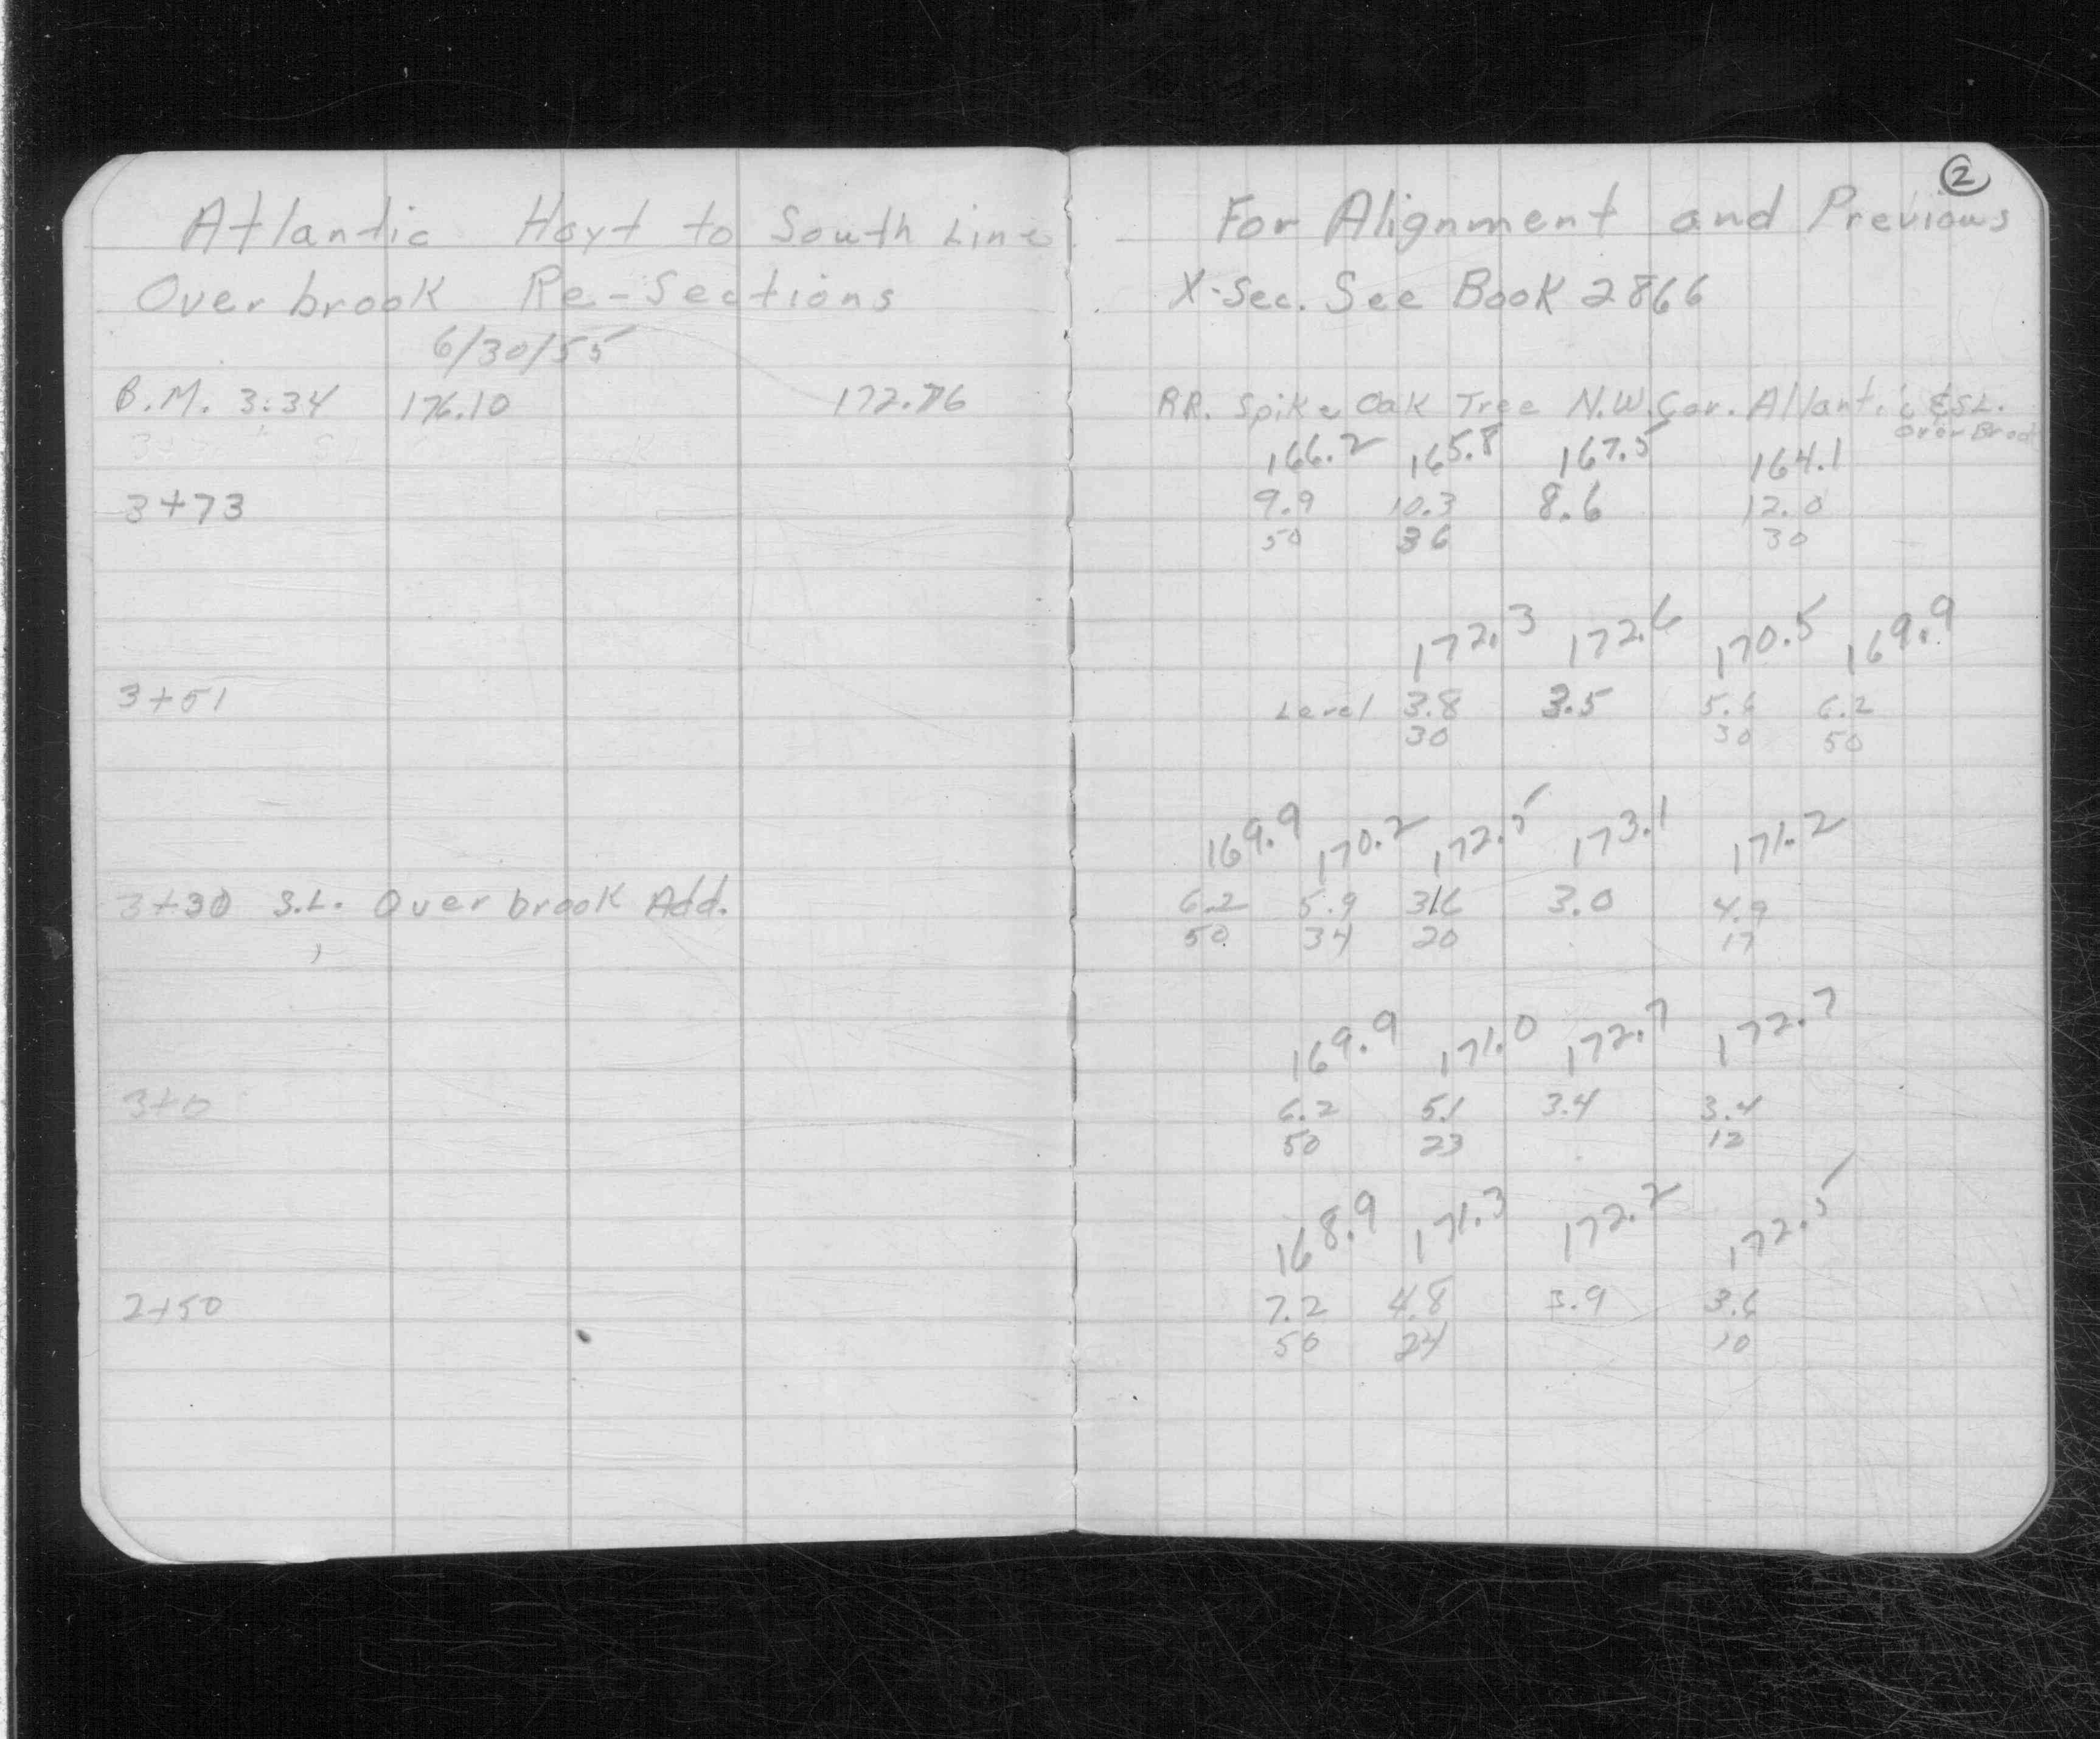 Atlantic Hoyt to South Line
Overbrook Re-Sections
6/30/55
B.M. 3.34 176.10 172.76
3+73
3+51
3+30 S.L. Overbrook Add.
3+0
2+50
2
For Alignment and Previous
X-Sec. See Book 2866
RR. Spike Oak Tree N.W. Cor. Atlantic & SL.
Over Brook
166.2 165.8 167.5 164.1
9.9 10.3 8.6 12.0
50 36 30
172.3 172.6 170.5 169.9
Level 3.8 3.5 5.6 6.2
30 30 50
169.9 170.2 172.5 173.1 171.2
6.2 5.9 3.6 3.0 4.9
50 34 20 17
169.9 171.0 172.7 172.7
6.2 5.1 3.4 3.4
50 23 12
168.9 171.3 172.2 172.5
7.2 4.8 3.9 3.6
50 24 10